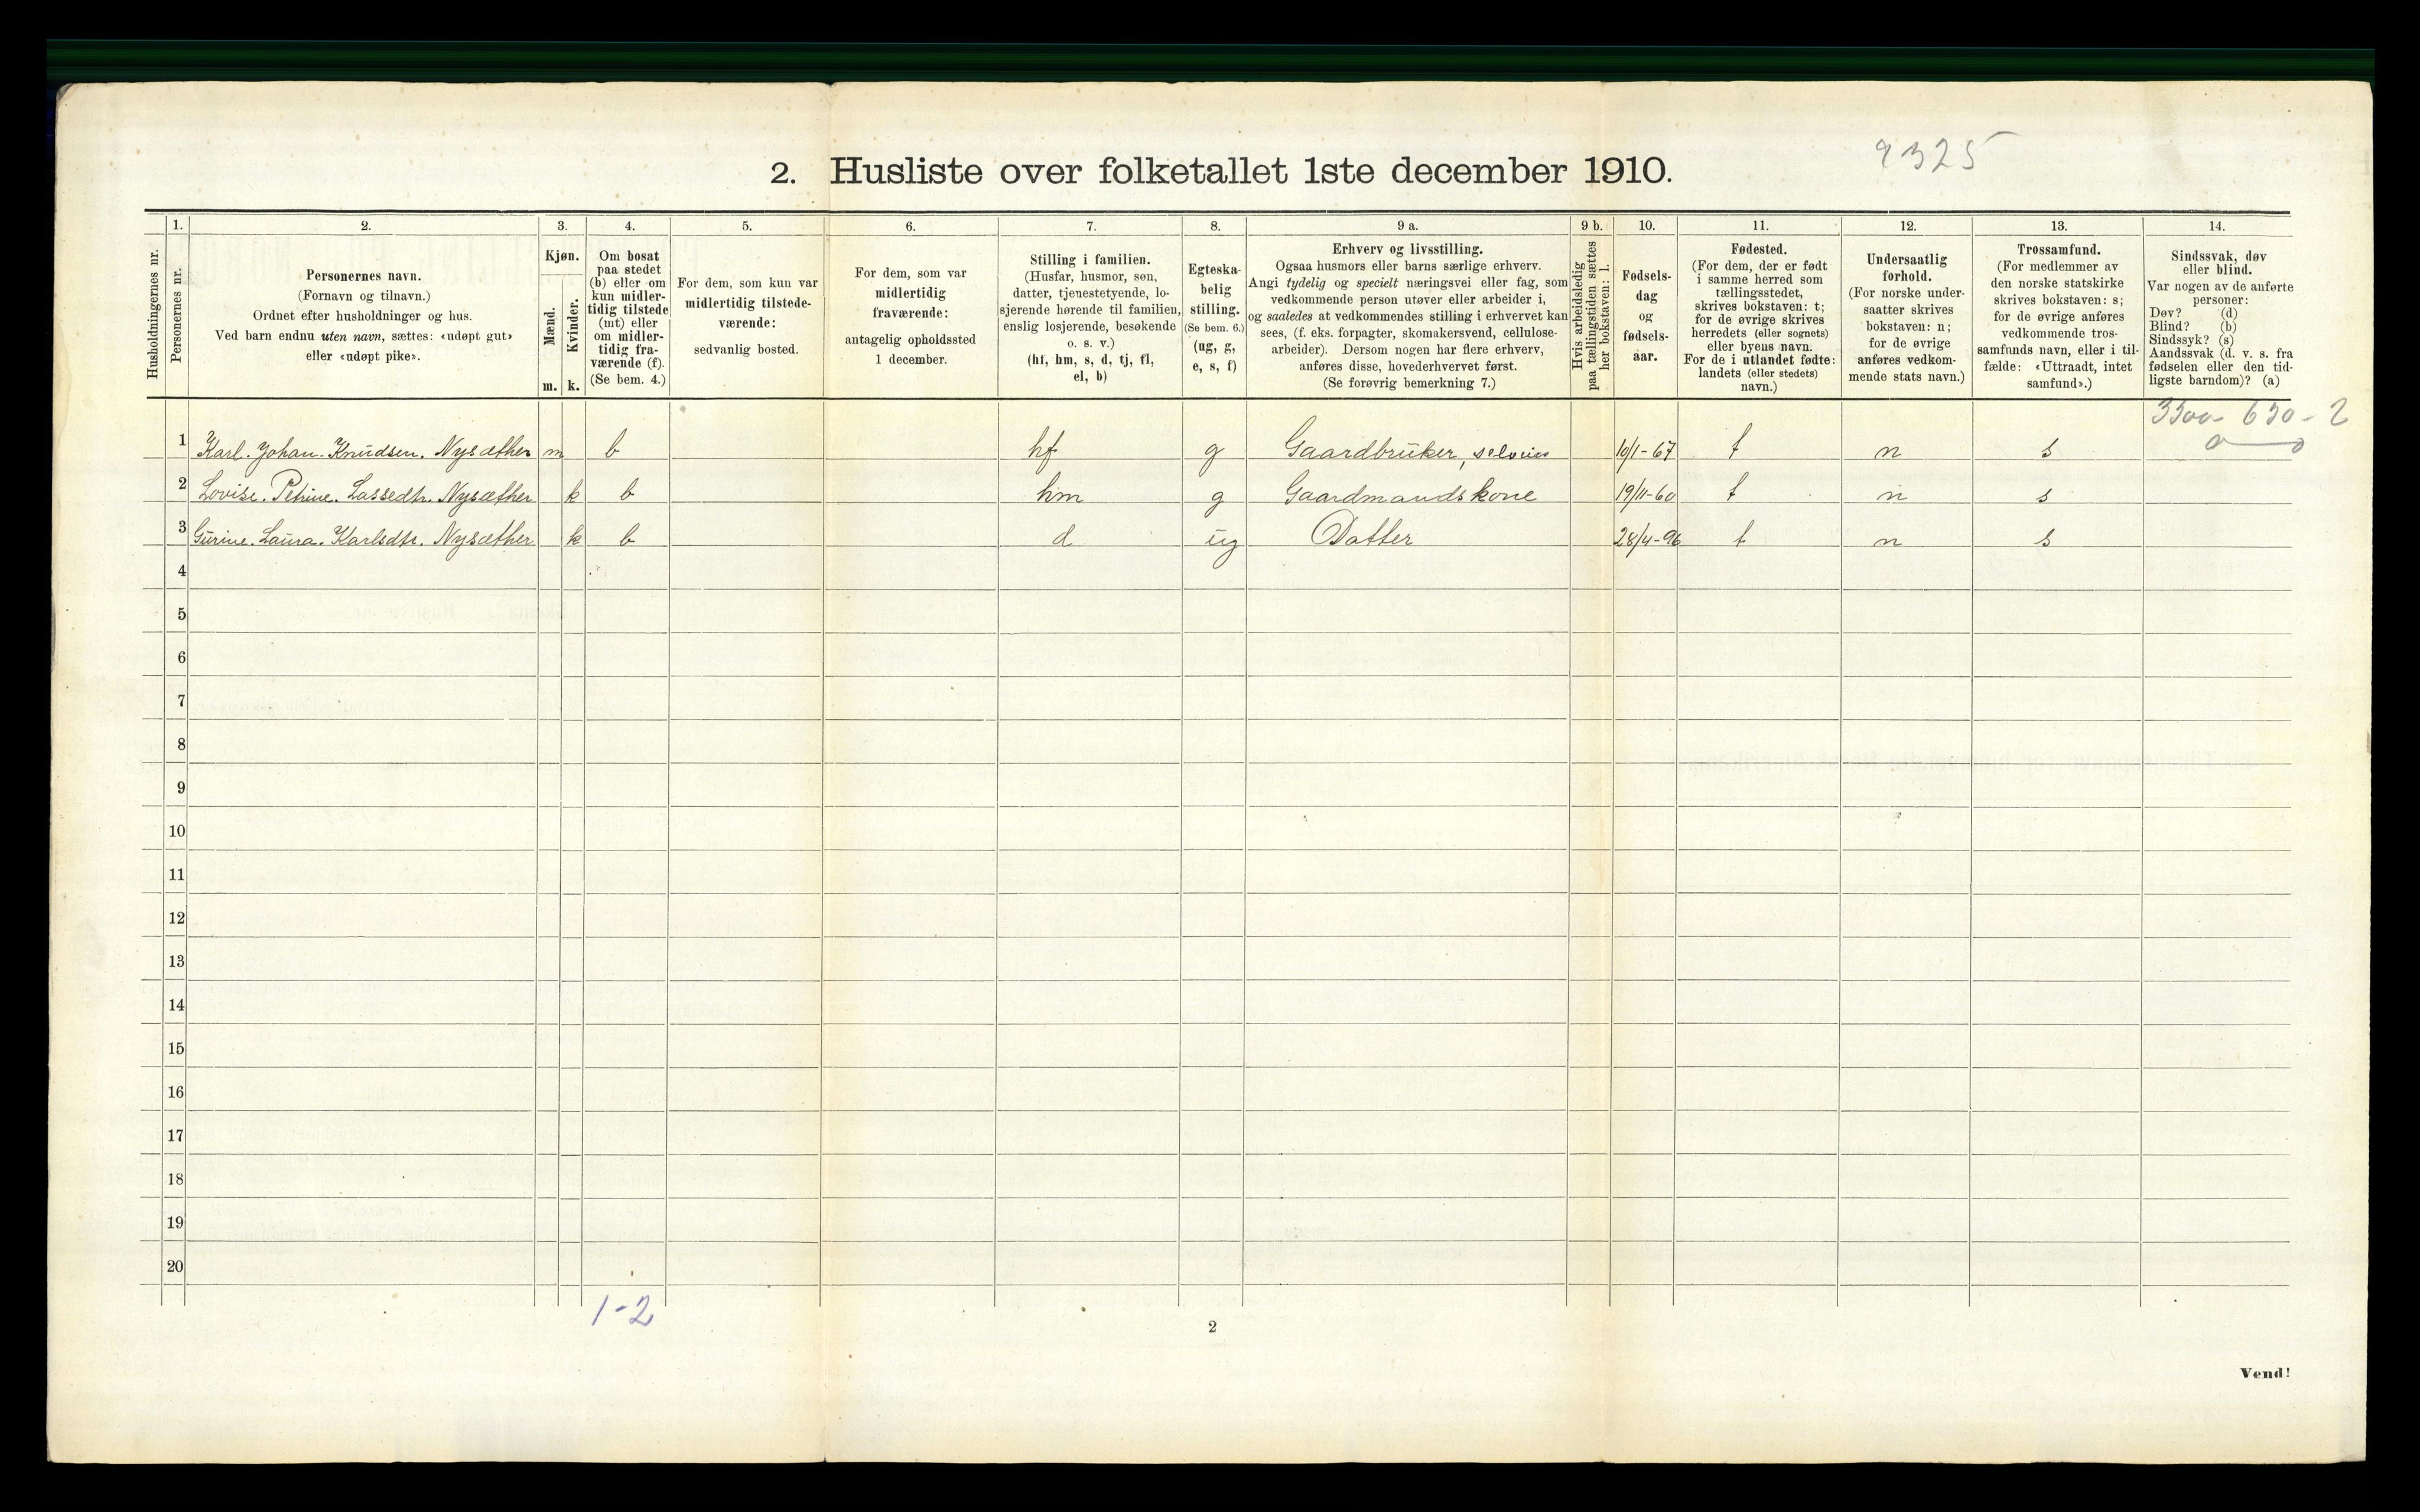 9325
2. Husliste over folketallet 1ste december 1910.
Husholdningernes nr.
1.
Personernes nr.
2.
Personernes navn.
(Fornavn og tilnavn.)
Ordnet efter husholdninger og hus.
Ved barn endnu uten navn, sættes: «udøpt gut»
eller «udøpt pike».
3.
Kjøn.
Mænd.
m.
Kvinder.
k.
4.
Om bosat
paa stedet
(b) eller om
kun midler-
tidig tilstede
(mt) eller
om midler-
tidig fra-
værende (f).
(Se bem. 4.)
5.
For dem, som kun var
midlertidig tilstede-
værende:
sedvanlig bosted.
6.
For dem, som var
midlertidig
fraværende:
antagelig opholdssted
1 december.
7.
Stilling i familien.
(Husfar, husmor, søn,
datter, tjenestetyende, lo-
sjerende hørende til familien,
enslig losjerende, besøkende
o. s. v.)
(hf, hm, s, d, tj, fl,
el, b)
8.
Egteska-
belig
stilling.
(Se bem. 6.)
(ug, g,
e, s, f)
9 a.
Erhverv og livsstilling.
Ogsaa husmors eller barns særlige erhverv.
Angi tydelig og specielt næringsvei eller fag, som
vedkommende person utøver eller arbeider i,
og saaledes at vedkommendes stilling i erhvervet kan
sees, (f. eks. forpagter, skomakersvend, cellulose-
arbeider). Dersom nogen har flere erhverv,
anføres disse, hovederhvervet først.
(Se forøvrig bemerkning 7.)
9 b.
Hvis arbeidsledig
paa tællingstiden sættes
her bokstaven: l.
10.
Fødsels-
dag
og
fødsels-
aar.
11.
Fødested.
(For dem, der er født
i samme herred som
tællingsstedet,
skrives bokstaven: t;
for de øvrige skrives
herredets (eller sognets)
eller byens navn.
For de i utlandet fødte:
landets (eller stedets)
navn.)
12.
Undersaatlig
forhold.
(For norske under-
saatter skrives
bokstaven: n;
for de øvrige
anføres vedkom-
mende stats navn.)
13.
Trossamfund.
(For medlemmer av
den norske statskirke
skrives bokstaven: s;
for de øvrige anføres
vedkommende tros-
samfunds navn, eller i til-
fælde: «Uttraadt, intet
samfund».)
14.
Sindssvak, døv
eller blind.
Var nogen av de anførte
personer:
Døv? (d)
Blind? (b)
Sindssyk? (s)
Aandssvak (d. v. s. fra
fødselen eller den tid-
ligste barndom)? (a)
3300 - 630 - 2
1 Karl. Johan. Knudsen. Nysæther m b hf g Gaardbruker, selveier 10/1-67 t n s
2 Lovise. Petrine. Lassedtr. Nysæther k b hm g Gaardmandskone 19/11-60 t n s
3 Gurine. Laura. Karlsdtr. Nysæther k b d ug Datter 28/4-96 t n s
4
5
6
7
8
9
10
11
12
13
14
15
16
17
18
19
20
1-2
2
Vend!